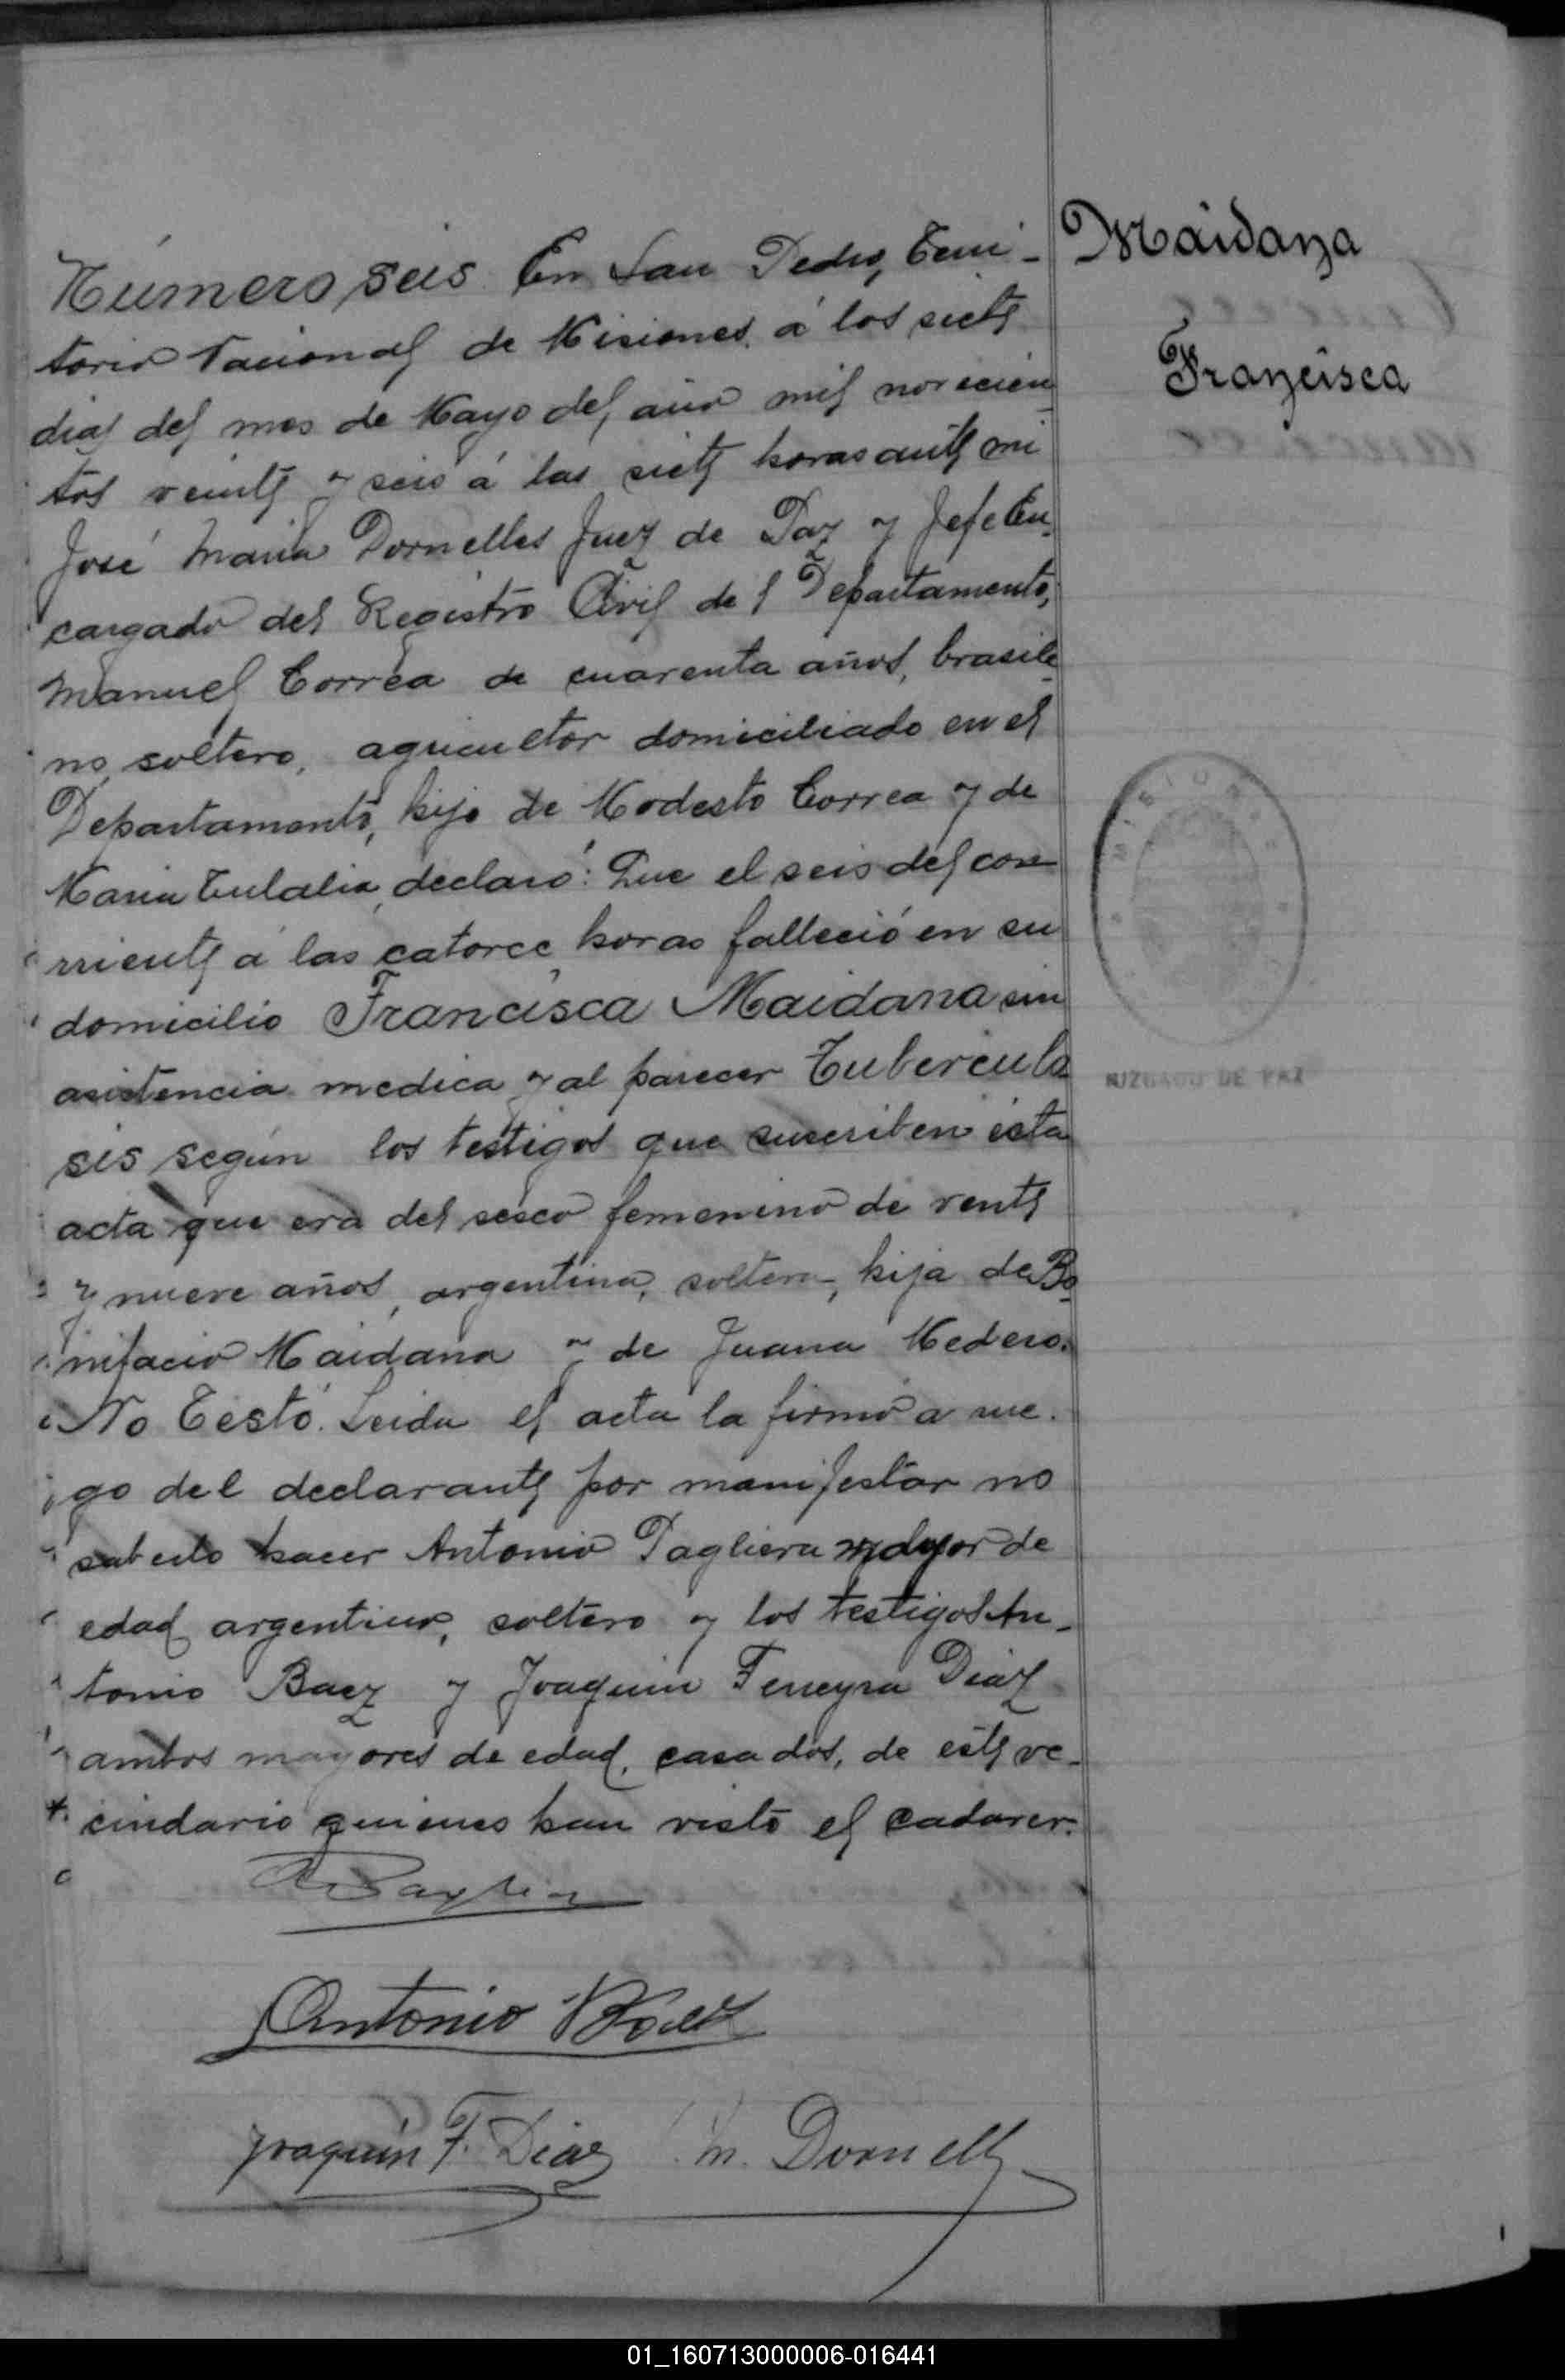 Maidana
Francisca
Número seis. En San Pedro, Terri-
torio Nacional de Misiones, á los siete
dias del mes de Mayo del año mil novecien
tos veinte y seis á las siete horas ante mi
José Maria Dornelles Juez de Paz y Jefe En-
cargado del Registro Civil del Departamento,
Manuel Correa de cuarenta años, brasile
no, soltero, agricultor domiciliado en el
Departamento, hijo de Modesto Correa y de
Maria Eulalia, declaró: Que el seis del cor
riente á las catorce horas falleció en su
domicilio Francisca Maidana sin
asistencia medica y al parecer Tuberculo
sis según los testigos que suscriben ésta
acta que era del secso femenino de vente
y nueve años, argentina, soltera, hija de Bo
nifacio Maidana y de Juana Medero.
No Testó. Leida el acta la firmó a rue-
go del declarante por manifestar no
saberlo hacer Antonio Pagliera mayor de
edad argentino, soltero y los testigos An-
tonio Baez y Joaquin Ferreyra Diaz
ambos mayores de edad, casados, de este ve-
cindario quienes han visto el cadaver.
Antonio Báez
Joaquín F. Diaz M. Dornelles
MISIONES
JUZGADO DE PAZ
01_160713000006-016441